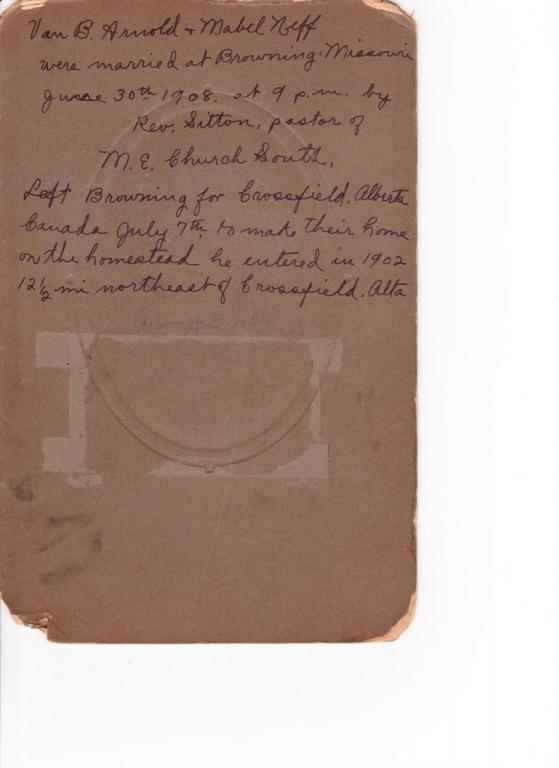 Van B. Arnold + Mabel Neff
were married at Browning, Missouri
June 30th 1908. at 9 p.m. by
Rev. Sitton, pastor of
M. E. Church South.
Left Browning for Crossfield, Alberta
Canada July 7th, to make their home
on the homestead he entered in 1902
12 1/2 mi northeast of Crossfield, Alta